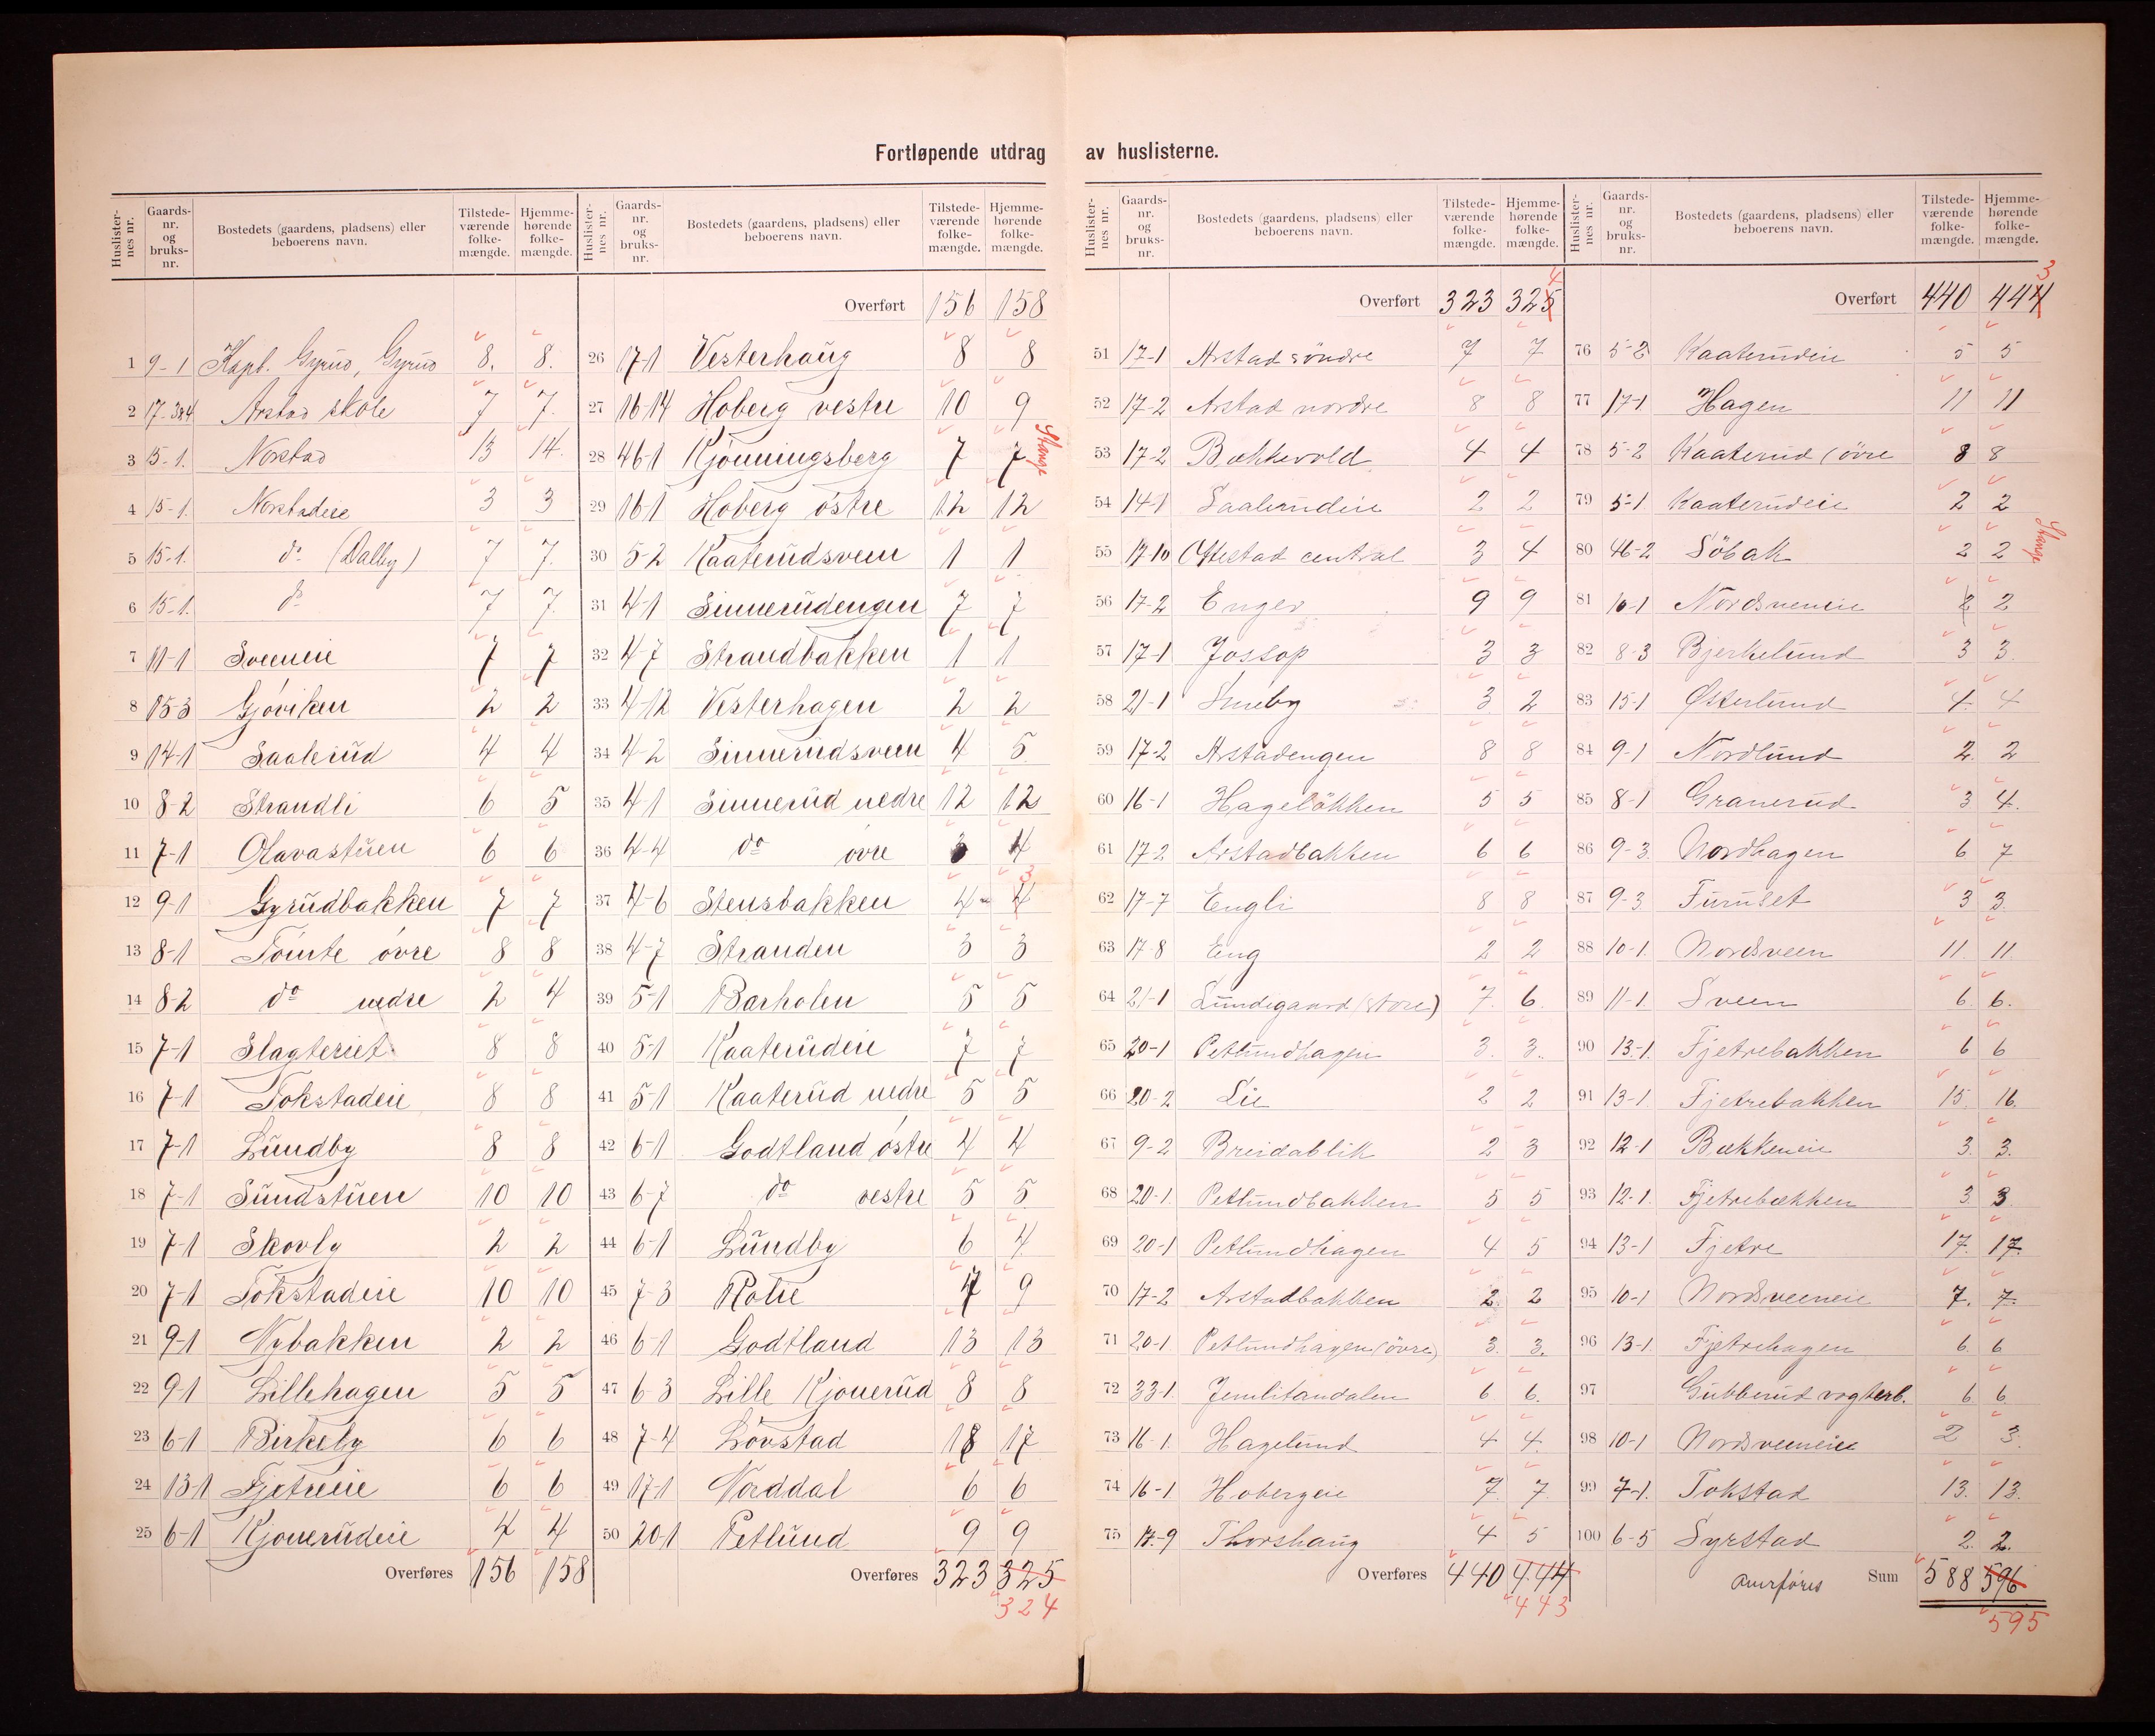 Fortløpende utdrag av huslisterne.
Huslister-nes nr. Gaards-nr. og bruks-nr. Bostedets (gaardens, pladsens) eller beboerens navn. Tilstede-værende folke-mængde. Hjemme-hørende folke-mængde.
1 9-1 Kapt. Gyrud, Gyrud 8. 8.
2 17-3&4 Arstad skole 7 7.
3 15-1. Norstad 13 14.
4 15-1. Norstadeie 3 3
5 15-1. do (Dalby) 7 7.
6 15-1. do 7 7.
7 11-1 Sveeneie 7 7
8 15-3 Gjøviken 2 2
9 14-1 Saalerud 4 4
10 8-2 Strandli 6 5
11 7-1 Olavastuen 6 6
12 9-1 Gyrudbakken 7 7
13 8-1 Tomte øvre 8 8
14 8-2 do nedre 2 4
15 7-1 Slagteriet 8 8
16 7-1 Tokstadeie 8 8
17 7-1 Lundby 8 8
18 7-1 Sundstuen 10 10
19 7-1 Skovly 2 2
20 7-1 Tokstadeie 10 10
21 9-1 Nybakken 2 2
22 9-1 Lillehagen 5 5
23 6-1 Birkely 6 6
24 13-1 Fjetreeie 6 6
25 6-1 Kjonerudeie 4 4
Overføres 156 158
Huslister-nes nr. Gaards-nr. og bruks-nr. Bostedets (gaardens, pladsens) eller beboerens navn. Tilstede-værende folke-mængde. Hjemme-hørende folke-mængde.
Overført 156 158
26 17-1 Vesterhaug 8 8
27 16-14 Hoberg vestre 10 9
28 46-1 Kjønningsberg 7 7 Stange
29 16-1 Hoberg østre 12 12
30 5-2 Kaaterudsveen 1 1
31 4-1 Sinnerudengen 7 7
32 4-7 Strandbakken 1 1
33 4-12 Vesterhagen 2 2
34 4-2 Sinnerudsveen 4 5
35 4-1 Sinnerud nedre 12 12
36 4-4 do øvre 3 4
37 4-6 Stensbakken 4 4 3
38 4-7 Stranden 3 3
39 5-1 Barholen 5 5
40 5-1 Kaaterudeie 7 7
41 5-1 Kaaterud nedre 5 5
42 6-1 Godtland østre 4 4
43 6-7 do vestre 5 5
44 6-1 Lundby 6 4
45 7-3 Rotie 7 9
46 6-1 Godtland 13 13
47 6-3 Lille Kjonerud 8 8
48 7-4 Løvstad 18 17
49 17-1 Norddal 6 6
50 20-1 Petlund 9 9
Overføres 323 325
324
Huslister-nes nr. Gaards-nr. og bruks-nr. Bostedets (gaardens, pladsens) eller beboerens navn. Tilstede-værende folke-mængde. Hjemme-hørende folke-mængde.
Overført 323 325 4
51 17-1 Arstad söndre 7 7
52 17-2 Arstad nordre 8 8
53 17-2 Bækkevold 4 4
54 14-1 Saalerudeie 2 2
55 17-10 Ottestad central 3 4
56 17-2 Enger 9 9
57 17-1 Jossop 3 3
58 21-1 Smeby 3 2
59 17-2 Arstadengen 8 8
60 16-1 Hagelökken 5 5
61 17-2 Arstadbakken 6 6
62 17-7 Engli 8 8
63 17-8 Eng 2 2
64 21-1 Lundegaard (store) 7. 6.
65 20-1 Petlundhagen 3. 3.
66 20-2 Lie 2 2
67 9-2 Breidablik 2 3
68 20-1. Petlundbakken 5 5
69 20-1 Petlundhagen 4 5
70 17-2 Arstadbakken 2. 2
71 20-1 Petlundhagen (övre) 3. 3.
72 33-1. Jemlitandalen 6. 6.
73 16-1. Hagelund 4 4.
74 16-1 Hobergeie 7. 7.
75 17-9 Thorshaug 4 5
Overføres 440 444
443
Huslister-nes nr. Gaards-nr. og bruks-nr. Bostedets (gaardens, pladsens) eller beboerens navn. Tilstede-værende folke-mængde. Hjemme-hørende folke-mængde.
Overført 440 444 3
76 5-2 Kaaterudeie 5 5
77 17-1. Hagen 11 11
78 5-2 Kaaterud (övre 8 8
79 5-1 Kaaterudeie 2 2
80 46-2 Söbak 2 2 Stange
81 10-1 Nordsveneie 2 2
82 8-3 Bjerkelund 3 3.
83 15-1 Østerlund 4. 4
84 9-1 Nordlund 2. 2
85 8-1 Granerud 3 4.
86 9-3. Nordhagen 6 7
87 9-3 Furuset 3 3.
88 10-1. Nordsveen 11. 11.
89 11-1. Sveen 6. 6.
90 13-1. Fjetrebakken 6 6
91 13-1 Fjetrebakken 15. 16.
92 12-1 Bækkeneie 3. 3.
93 12-1. Fjetrebækken 3. 3.
94 13-1 Fjetre 17. 17.
95 10-1 Nordsveeneie 7. 7.
96 13-1. Fjetrehagen 6. 6
97 Gubberud vogterb. 6 6.
98 10-1 Nordsveeneie 2 3.
99 7-1. Tokstad 13. 13.
100 6-5 Syrstad 2. 2.
Overføres Sum 588 596
595